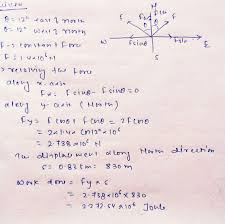 Given
θ = 12° east of north
θ = 12° west of north
F → constant force
F = 1.4 × 10⁶ N
N
F
F
W
E
F sinθ
S
→ resolving the force
along x-axis
Fx = F sinθ - F sinθ = 0
along y-axis (North)
Fy = F cosθ + F cosθ = 2F cosθ
= 2×1.4 cos12° × 10⁶
= 2.738 × 10⁶ N
displacement along North direction
S = 0.83 km = 830 m
Work done = Fy × S
= 2.738×10⁶ × 830
= 2272.54 × 10⁶ Joule